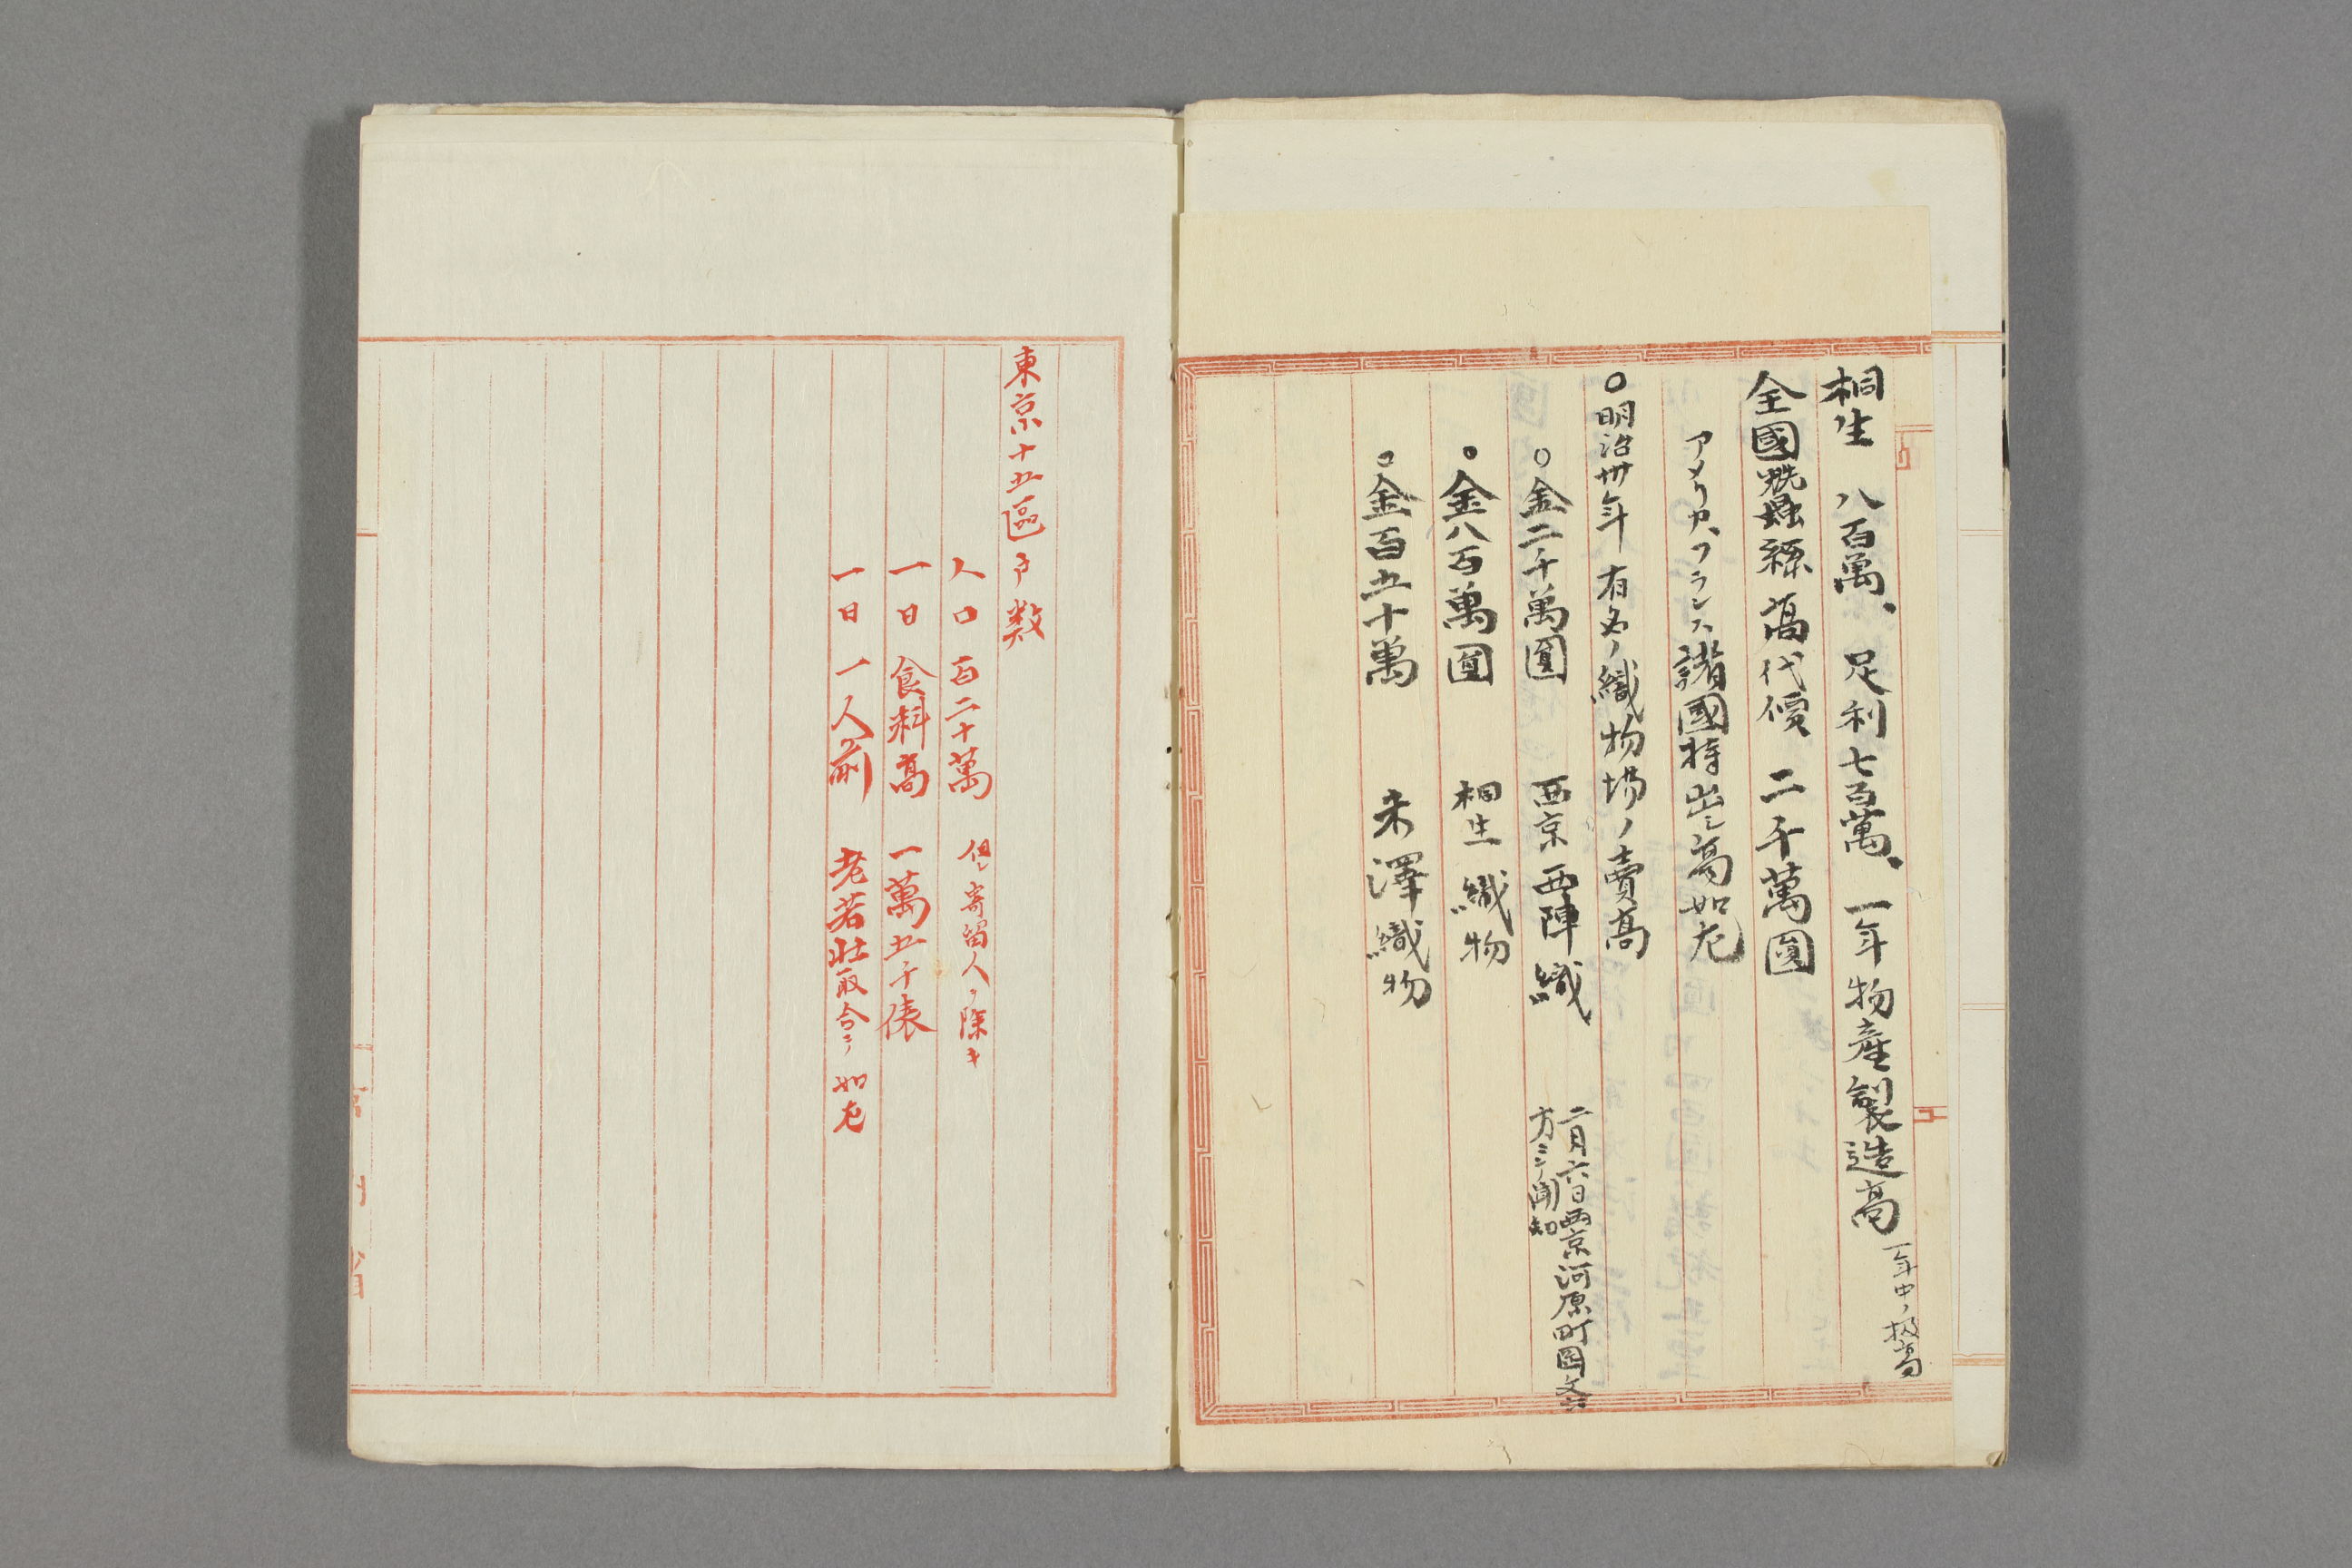 桐生 八百萬、足利七百萬、一年物産製造高
一年中ノ扱高
全國蚕絲高代價 二千萬圓
アメリカ、フランス諸國持出シ高如左
○明治卅年有名ノ織物場ノ賣高
○金二千萬圓 西京西陣織
二月六日西京河原町
方ニテ聞知
○金八百萬圓 桐生織物
○金百五十萬 米澤織物
東京十五區戸数
人口百二十萬 但シ寄留人ヲ除キ
一日食料高 一萬五千俵
一日一人ノ前 老若壮取合テ如左
省